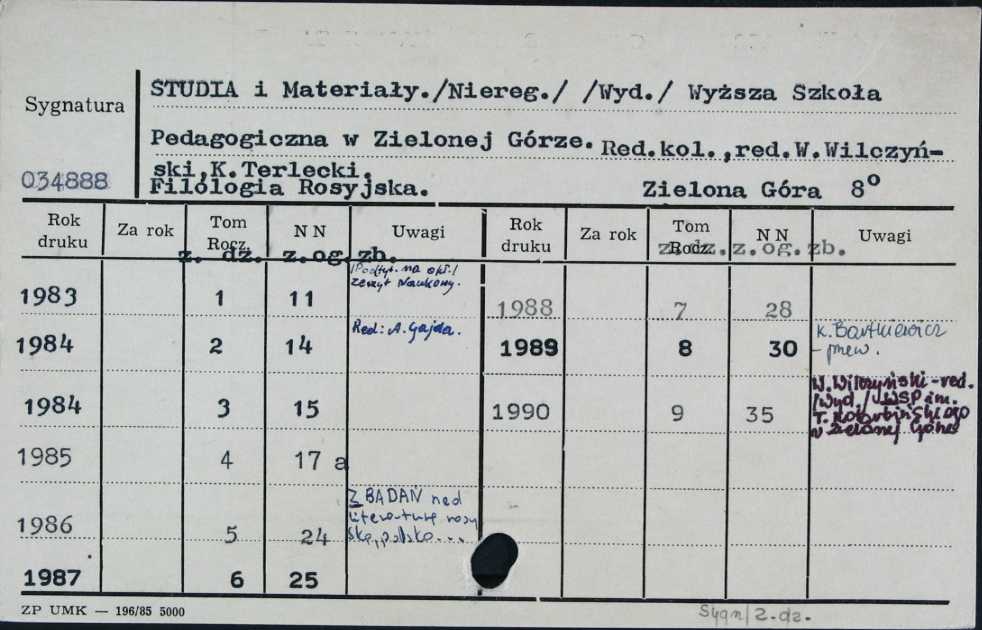 STUDIA i Materiały./Niereg./ /Wyd./ Wyższa Szkoła
Sygnatura
Pedagogiczna w Zielonej Górze. Red.kol.,red.W.Wilczyń-
ski,K.Terlecki.
034888
Filologia Rosyjska. Zielona Góra 8°
Rok druku Za rok Tom Rocz. N N Uwagi Rok druku Za rok Tom Rocz. N N Uwagi
z. dz. z.og.zb. z. dz. z.og.zb.
1983 1 11 /Podtyt. na okł./
Zeszyt Naukowy.
1988 7 28
1984 2 14 Red: A. Gajda.
1989 8 30 K. Bartkiewicz
- przew.
1984 3 15
1990 9 35 W. Wilczyński - red.
/Wyd./ WSP im.
T. Kotarbińskiego
w Zielonej Górze
1985 4 17 a
1986 5 24 Z BADAŃ nad
literaturą rosyj
ską, polską...
1987 6 25
ZP UMK — 196/85 5000
Sygn/z.dz.